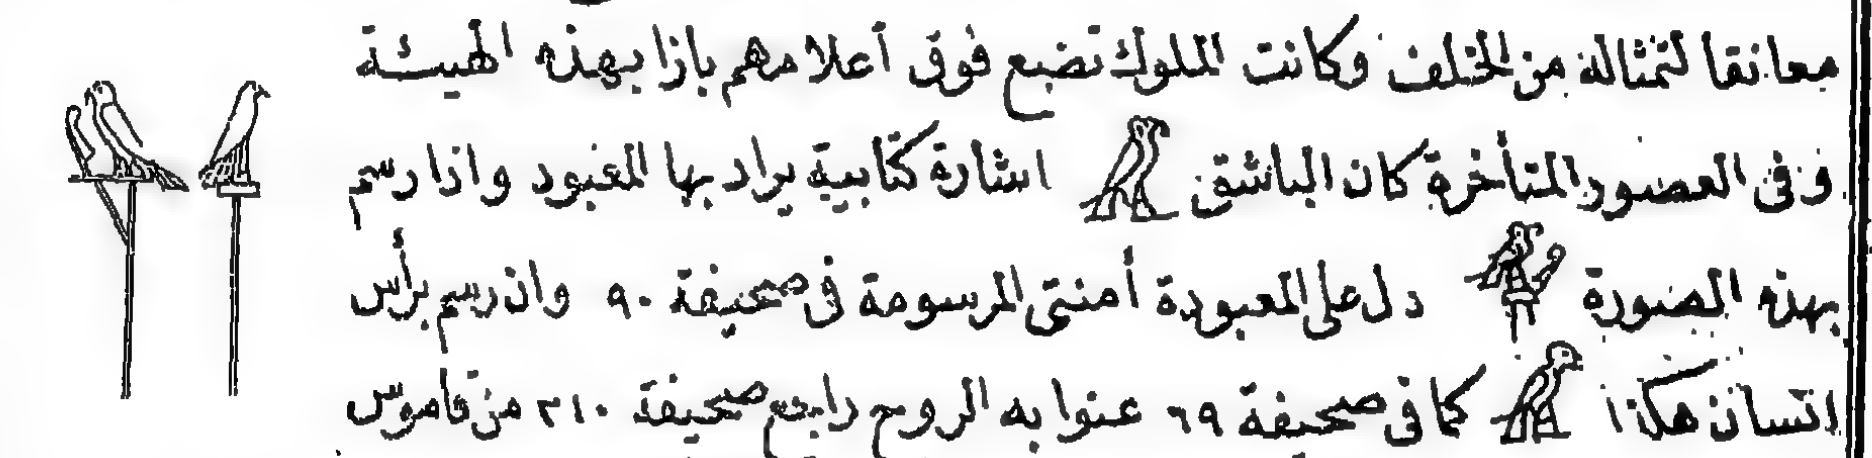 معانقا لتمثاله من الخلف وكانت الملوك تضع فوق أعلامهم بازا بهذه الهيئة
وفى العصور المتأخرة كان الباشق اشارة كتابية يراد بها المعبود واذا رسم
بهذه الصورة دل على المعبودة أمنتى المرسومة فى صحيفة ٩٠ وان رسم برأس
انسان هكذا كما فى صحيفة ٦٩ عنوا به الروح راجع صحيفة ٣١٠ من قاموس